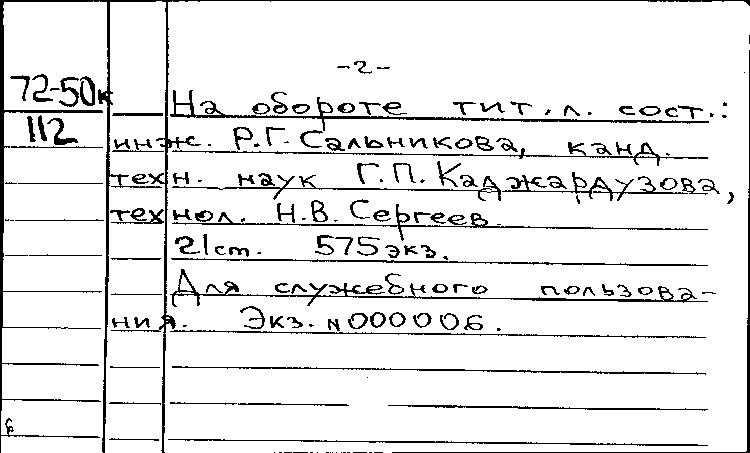 -2-
72-50к
112
На обороте тит. л. сост.:
инж. Р.Г. Сальникова, канд.
техн. наук Г.П. Каджардузова,
технол. Н.В. Сергеев
21 ст. 575 экз.
Для служебного пользова-
ния. Экз. N 000006.